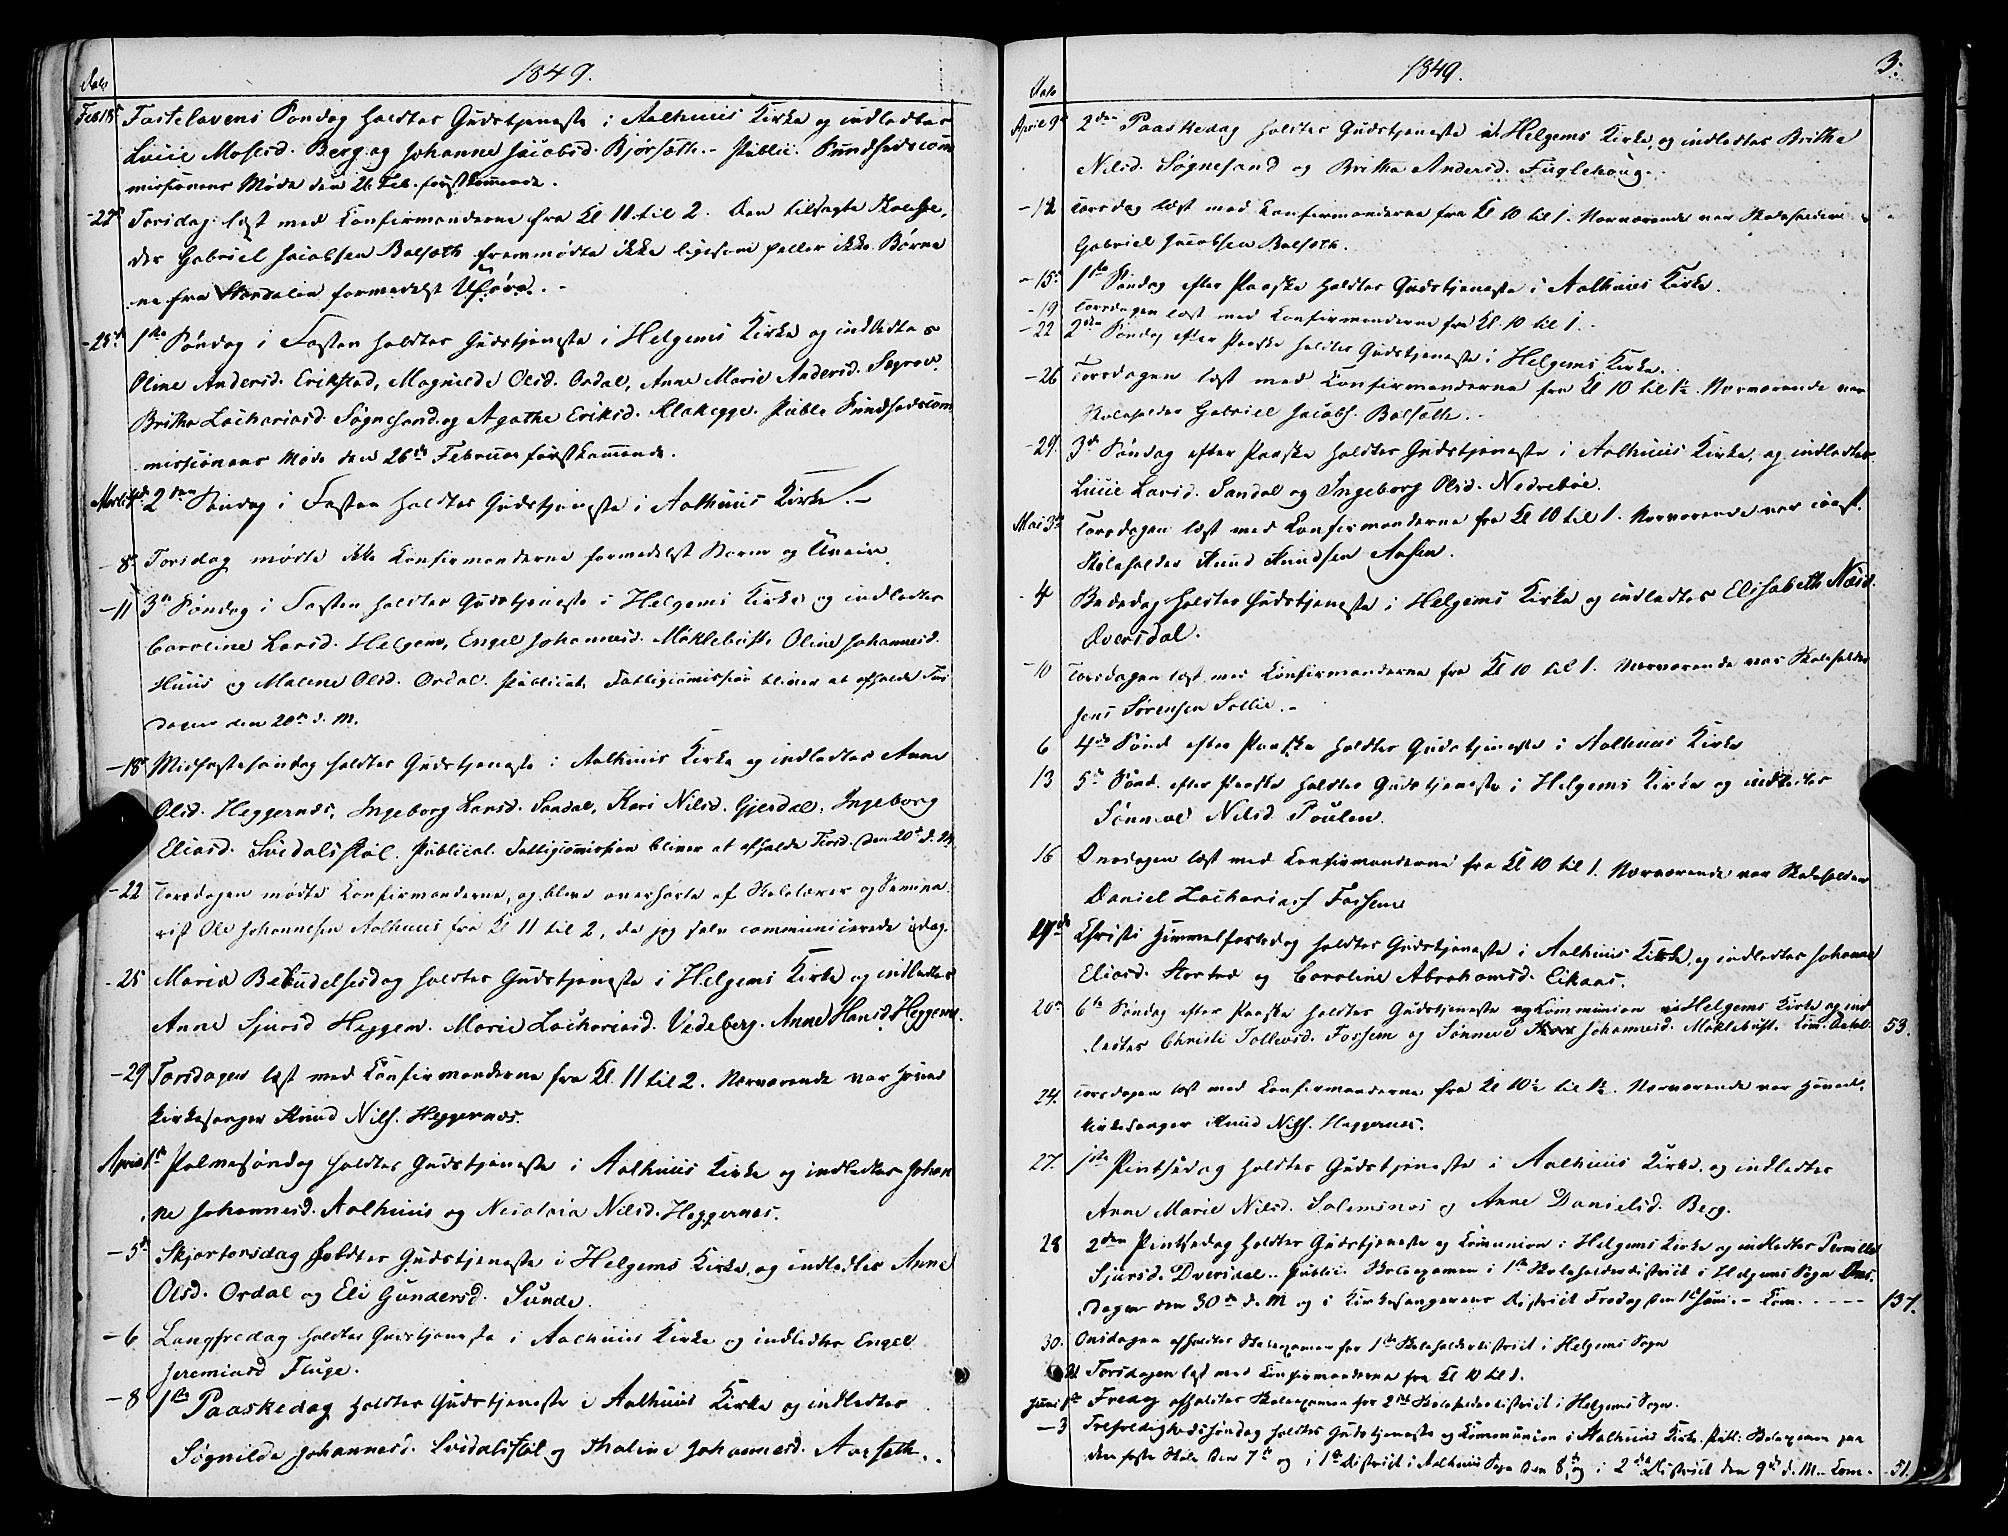 1849.
Dato
Feb 18de Fastelavens Søndag holdtes Gudstjeneste i Aalhuus Kirke og indledtes
Lucie Mosesd. Berg og Johanne Jacobsd. Bjørsæth. - Public. Sundhedscom
missionens Møde den 26 Feb. førstkommende.
-22de Torsdag læst med Confirmanderne fra Kl 11 til 2. Den tilsagte Skolehol,
der Gabriel Jacobsen Balsæth fremmødte ikke ligesom heller ikke Børne
ne fra Stardalen formedelst Uføre. -
-25de 1ste Søndag i Fasten holdtes Gudstjeneste i Helgems Kirke og indledtes
Oline Andersd. Erikstad, Magnilde Olsd. Ordal, Anne Marie Andersd. Søgrov
Britha Zachariasd. Søgnesand og Agathe Eriksd. Klakegge. Public Sundhedscom
missionens Møde den 26de Februar førstkommende.
Marts 4de 2den Søndag i Fasten holdtes Gudstjeneste i Aalhuus Kirke. -
- 8de Torsdag mødte ikke Confirmanderne formedelst Storm og Uveir.
-11 3de Søndag i Fasten holdtes Gudstjeneste i Helgems Kirke og indledtes
Caroline Larsd. Helgem, Engel Johannesd. Møklebust, Oline Johannesd.
Huus og Malene Olsd. Ordal. Publicat. Fattigcommission bliver at afholde Tirs
dagen den 20de d. M.
-18de Midfastesøndag holdtes Gudstjeneste i Aalhuus Kirke og indledtes Anne
Olsd. Heggernæs, Ingeborg Larsd. Sandal, Kari Nilsd. Gjerdal, Ingeborg
Eliasd. Svidalsstøl. Publicat. Fattigcommission bliver at afholde Tirsd. den 20de d. M.
-22 Torsdagen mødte Confirmanderne, og bleve overhørte af Skolelærer og Semina
rist Ole Johannesen Aalhuus fra Kl 11 til 2, da jeg selv communicerede idag.
-25 Mariæ Bebudelsesdag holdtes Gudstjeneste i Helgems Kirke og indledtes
Anne Sjursd Heggem. Marie Zachariasd. Vedeberg. Anne Hansd. Heggem.
-29 Torsdagen læst med Confirmanderne fra Kl. 11 til 2. Nærværende var Hoved
kirkesanger Knud Nils. Heggernæs.
April 1ste Palmesøndag holdtes Gudstjeneste i Aalhuus Kirke og indledtes Johan
ne Johannesd. Aalhuus og Nicolaia Nilsd. Heggernæs.
-5de Skjærtorsdag holdtes Gudstjeneste i Helgems Kirke, og indledtes Anne
Olsd. Ordal og Eli Gundersd. Sunde.
-6 Langfredag holdtes Gudstjeneste i Aalhuus Kirke og indledtes Engel
Jeremiasd Fluge.
-8 1ste Paaskedag holdtes Gudstjeneste i Aalhuus Kirke og indledtes
Søgnilde Johannesd. Svidalsstøl og Thaline Johannesd. Aarsæth.
1849.
3.
Dato
April 9de 2den Paaskedag holdtes Gudstjeneste i Helgems Kirke, og indledtes Britha
Nilsd. Søgnesand og Britha Andersd. Fuglehoug.
-12 Torsdag læst med Confirmanderne fra Kl 10 til 1. Nærværende var Skoleholder
Gabriel Jacobsen Balsæth.
-15de 1ste Søndag efter Paaske holdtes Gudstjeneste i Aalhuus Kirke.
-19 Torsdagen læst med Confirmanderne fra Kl. 10 til 1.
-22 2den Søndag efter Paaske holdtes Gudstjeneste i Helgems Kirke.
-26 Torsdagen læst med Confirmanderne fra Kl 10 til 1½. Nærværende var
Skoleholder Gabriel Jacobs. Balsæth.
-29. 3de Søndag efter Paaske holdtes Gudstjeneste i Aalhuus Kirke, og indledtes
Lucie Larsd. Sandal og Ingeborg Olsd. Nedrebøe.
Mai 3de Torsdagen læst med Confirmanderne fra Kl 10 til 1. Nærværende var const.
Skoleholder Knud Knudsen Aasen.
-4 Bededag holdtes Gudstjeneste i Helgems Kirke og indledtes Elisabeth
Dversdal.
-10 Torsdagen læst med Confirmanderne fra Kl 10 til 1. Nærværende var Skoleholder
Jens Sørensen Sollie. -
6 4de Sønd efter Paaske holdtes Gudstjeneste i Aalhuus Kirke
13 5te Sønd. efter Paaske holdtes Gudstjeneste i Helgems Kirke og indledtes
Sønneve Nilsd. Poulen.
16 Onsdagen læst med Confirmanderne fra Kl 10 til 1. Nærværende var Skoleholder
Daniel Zacharias Fossem
17de Christi Himmelfartsdag holdtes Gudstjeneste i Aalhuus Kirke, og indledtes Johanne
Eliasd. og Caroline Abrahamsd. Eikaas.
20de 6te Søndag efter Paaske holdtes Gudstjeneste og Communion i Helgems Kirke og ind
ledtes Christi Tollevsd. Fossem og Sønneve Johannesd. Møklebust. Com. Antal 53.
24. Torsdagen læst med Confirmanderne fra Kl 10½ til 1½. Nærværende var Hoved
kirkesanger Knud Nils. Heggernæs.
27. 1ste Pintsedag holdtes Gudstjeneste i Aalhuus Kirke, og indledtes
Anne Marie Nilsd. Solemsnes og Anne Danielsd. Berg.
28 2den Pintsedag holdtes Gudstjeneste og Communion i Helgems Kirke og indledtes Pernille
Sjursd. Dversdal.. Public. Skoleexamen i 1ste Skoleholderdistrict i Helgems Sogn Ons,
dagen den 30te d. M og i Kirkesangerens District Fredag den 1ste Juni. - Com. - - - - - 137.
30. Onsdagen afholdtes Skoleexamen for 1ste Skoleholderdistrict i Helgems Sogn
31 Torsdagen læst med Confirmanderne fra Kl 10 til 1.
Juni 1ste Fredag afholdtes Skoleexamen for 2det Skoleholderdistrict i Helgems Sogn.
-3 Trefoldighedssøndag holdtes Gudstjeneste og Communion i Aalhuus Kirke. Publ: Skoleexamen paa
den faste Skole den 7de og i 1ste District i Aalhuus Sogn den 8de, og i 2det District den 9de d. M. Com. - 51.